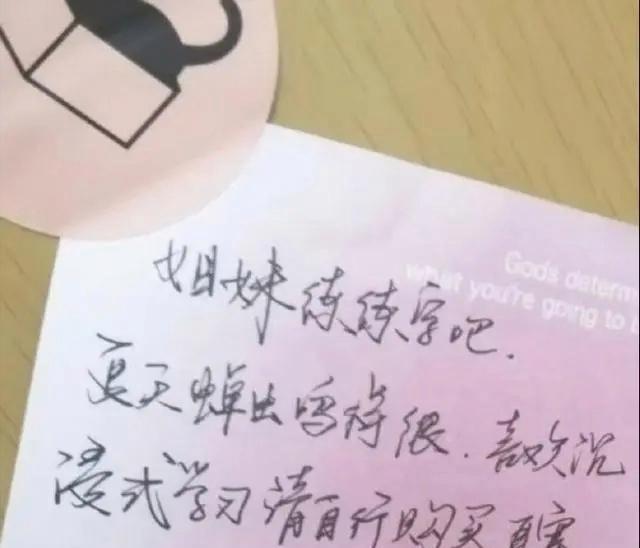 Gods determ
what you're going to
姐妹练练字吧.
夏天蝉出鸣得很.喜欢沉
浸式学习请自行购买耳塞